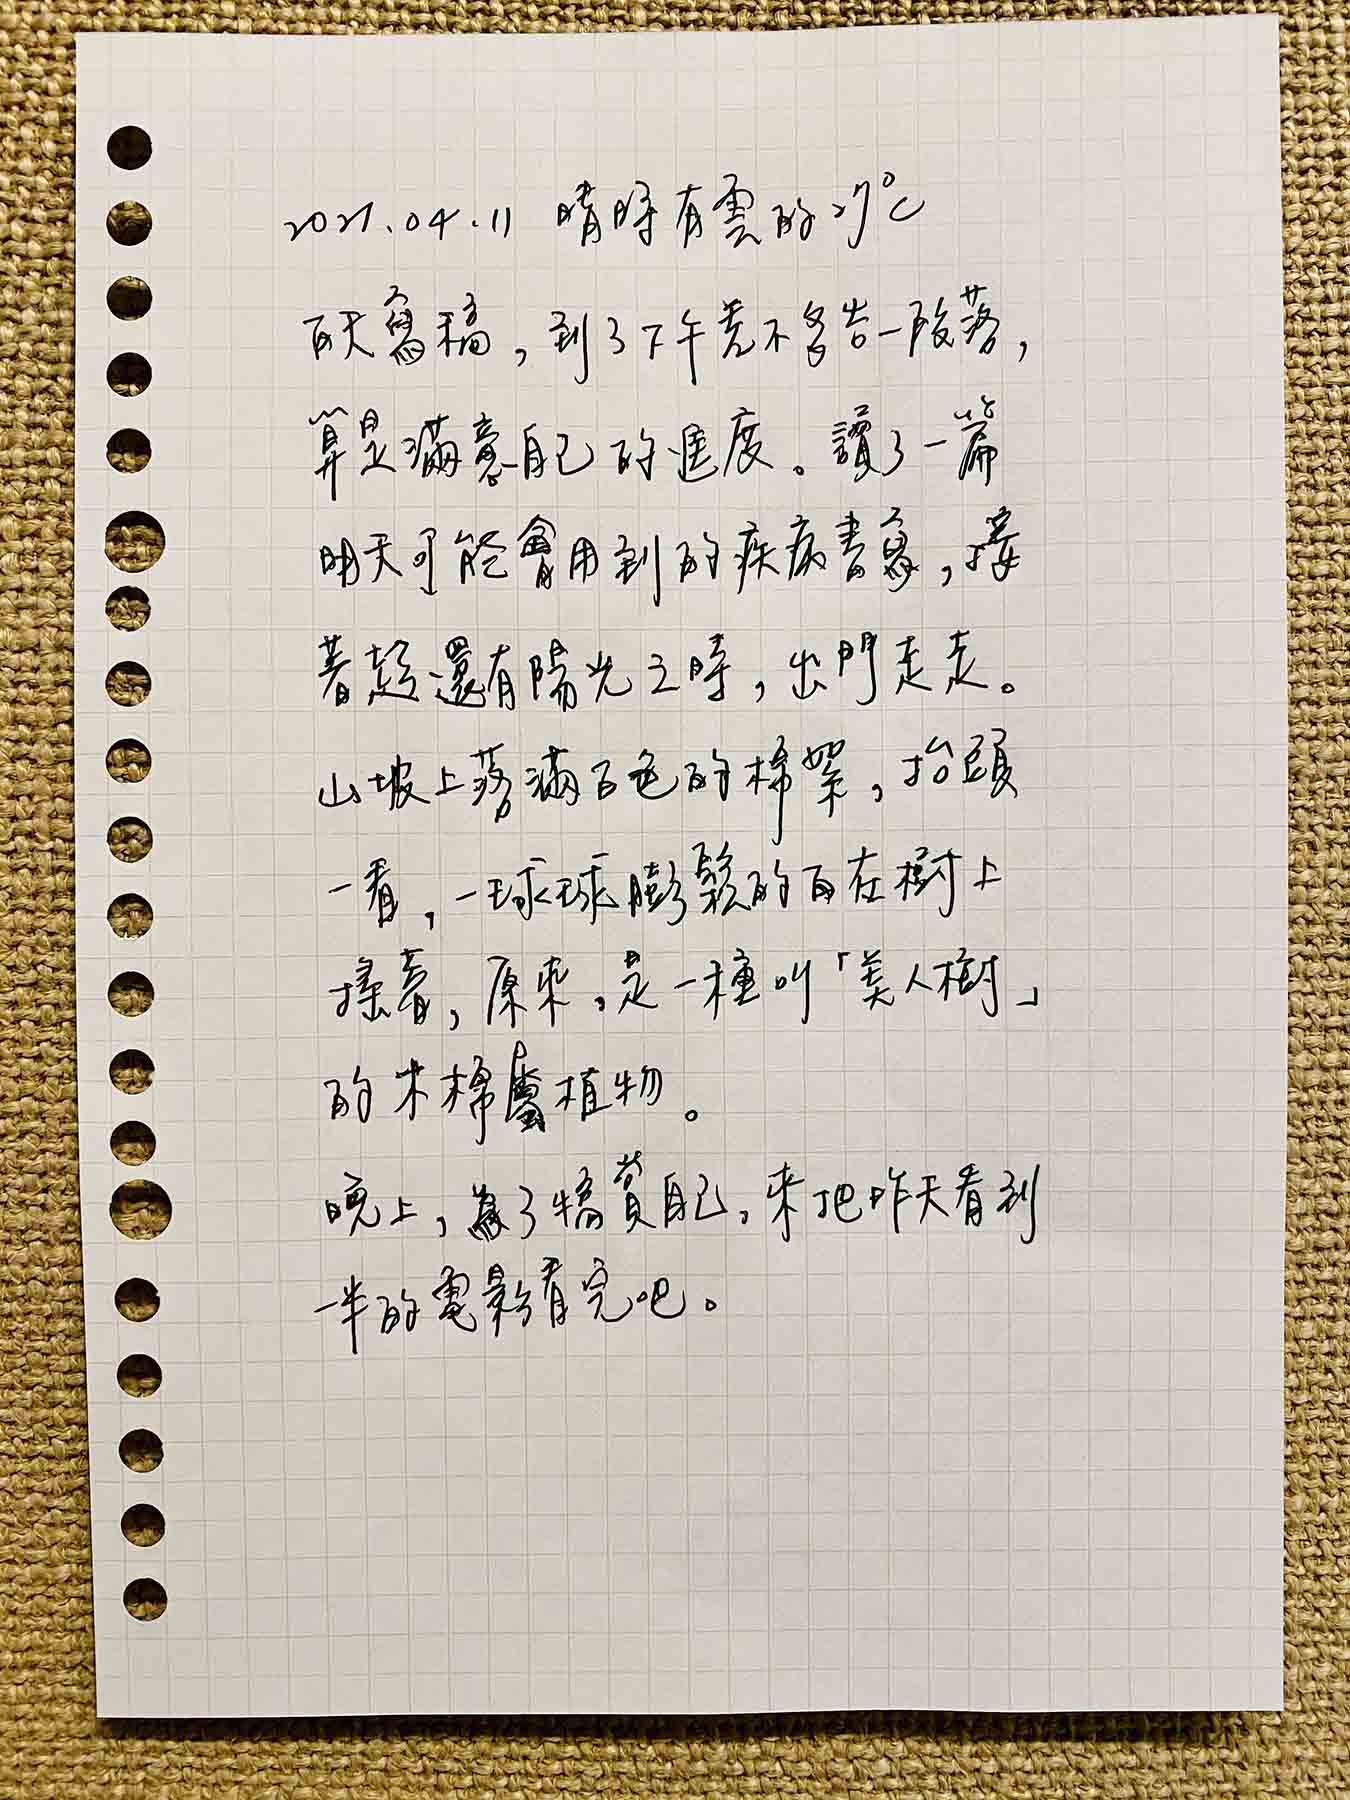 2021.04.11 晴時有雲的27℃
白天寫稿，到了下午差不多告一段落，
算是滿意自己的進度。讀了一篇
明天可能會用到的疾病書寫，接
著趁還有陽光之時，出門走走。
山坡上落滿白色的棉絮，抬頭
一看，一球球膨鬆的白在樹上
搖著，原來，是一種叫「美人樹」
的木棉屬植物。
晚上，為了犒賞自己，來把昨天看到
一半的電影看完吧。